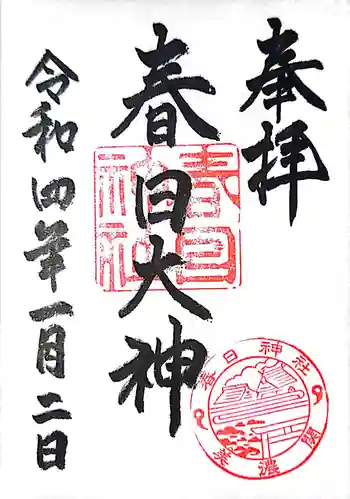 奉拝
春日大神
令和四年一月二日
春日神社
春日神社
美濃 関